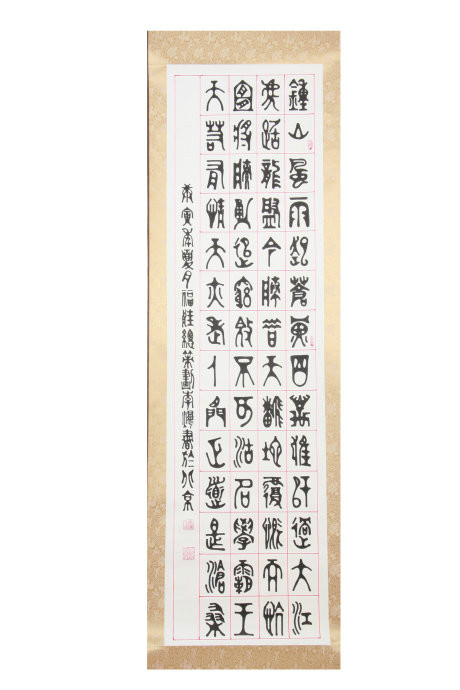 鍾山風雨起蒼黃百萬雄師過大江
虎踞龍盤今勝昔天翻地覆慨而慷
宜將賸勇追窮寇不可沽名學霸王
天若有情天亦老人間正道是滄桑
庚寅年夏月福娃總策劃李書於北京